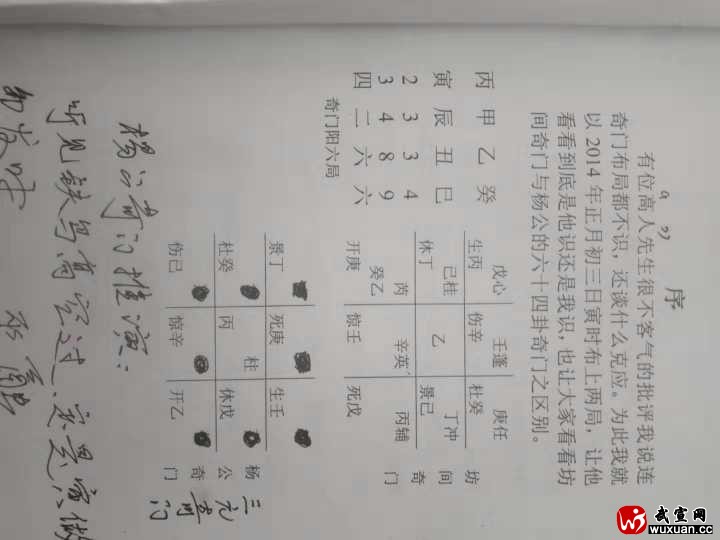 序
有位高人先生很不客气的批评我说连
奇门布局都不识，还谈什么克应。为此我就
以 2014 年正月初三日寅时布上两局，让他
看看到底是他识还是我识，也让大家看看坊
间奇门与杨公的六十四卦奇门之区别。
丙 甲 乙 癸
寅 辰 丑 巳
2 3 3 4
3 4 8 9
四 二 六 六
奇门阳六局
戊心 壬蓬 庚任 坊
生丙 伤辛 杜癸
己柱 乙 丁冲 间
休丁 景己
芮 辛英 丙辅 奇
癸乙 门
开庚 惊壬 死戊
景丁 死庚 生壬
柱 杨
杜癸 丙 休戊 公
奇
伤己 惊辛 开乙 门
三元奇门
杨公奇门推演：
武宣网
wuxuan.com